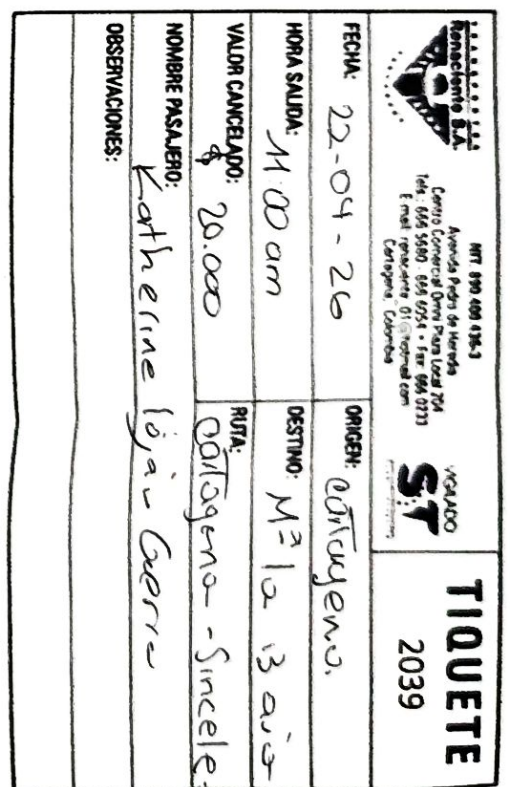 Renaciente S.A.
NIT. 890 400 436-3
Avenida Pedro de Heredia
Centro Comercial Omni Plaza Local 704
Tels.: 666 5580 - 666 6054 • Fax: 666 0233
E-mail: renaciente_01@hotmail.com
Cartagena, Colombia
VIGILADO
ST
TIQUETE
2039
FECHA: 22-04-26
ORIGEN: Cartagena.
HORA SALIDA: 11:00 am
DESTINO: Mª la Baja
VALOR CANCELADO: $ 20.000
RUTA: Cartagena - Sincele.
NOMBRE PASAJERO: Katherine Guerra
OBSERVACIONES: